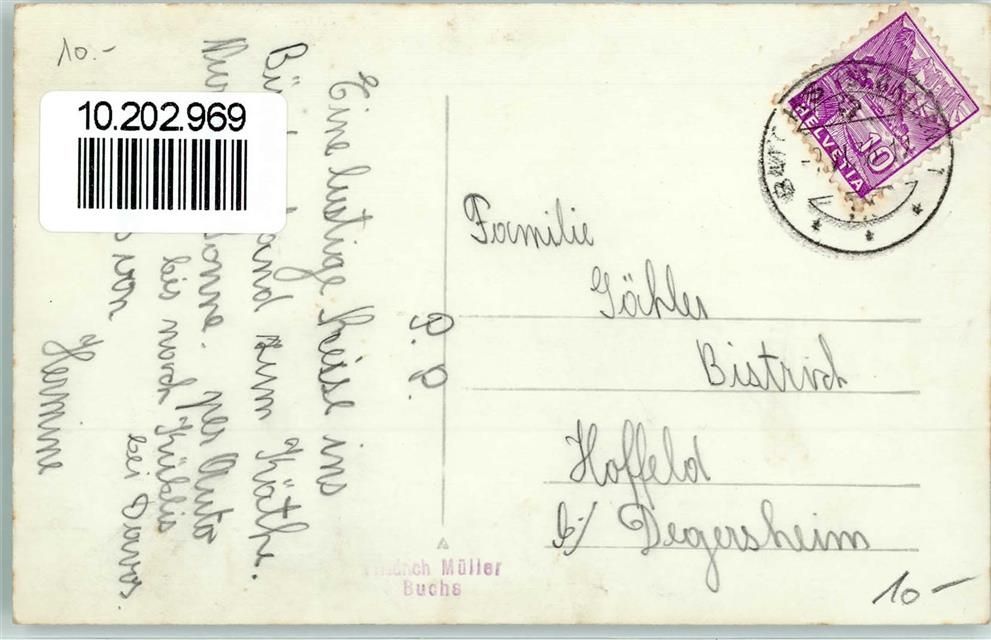 10.-
10.202.969
P. P.
Eine lustige Reise ins
Bü land zum Käthe.
onne. per Auto
bis nach Küblis
bei Davos.
von
Hermine
HELVETIA
10
Familie
Gähler
Bistrich
Hoffeld
b/ Degersheim
Müller
Buchs
10-